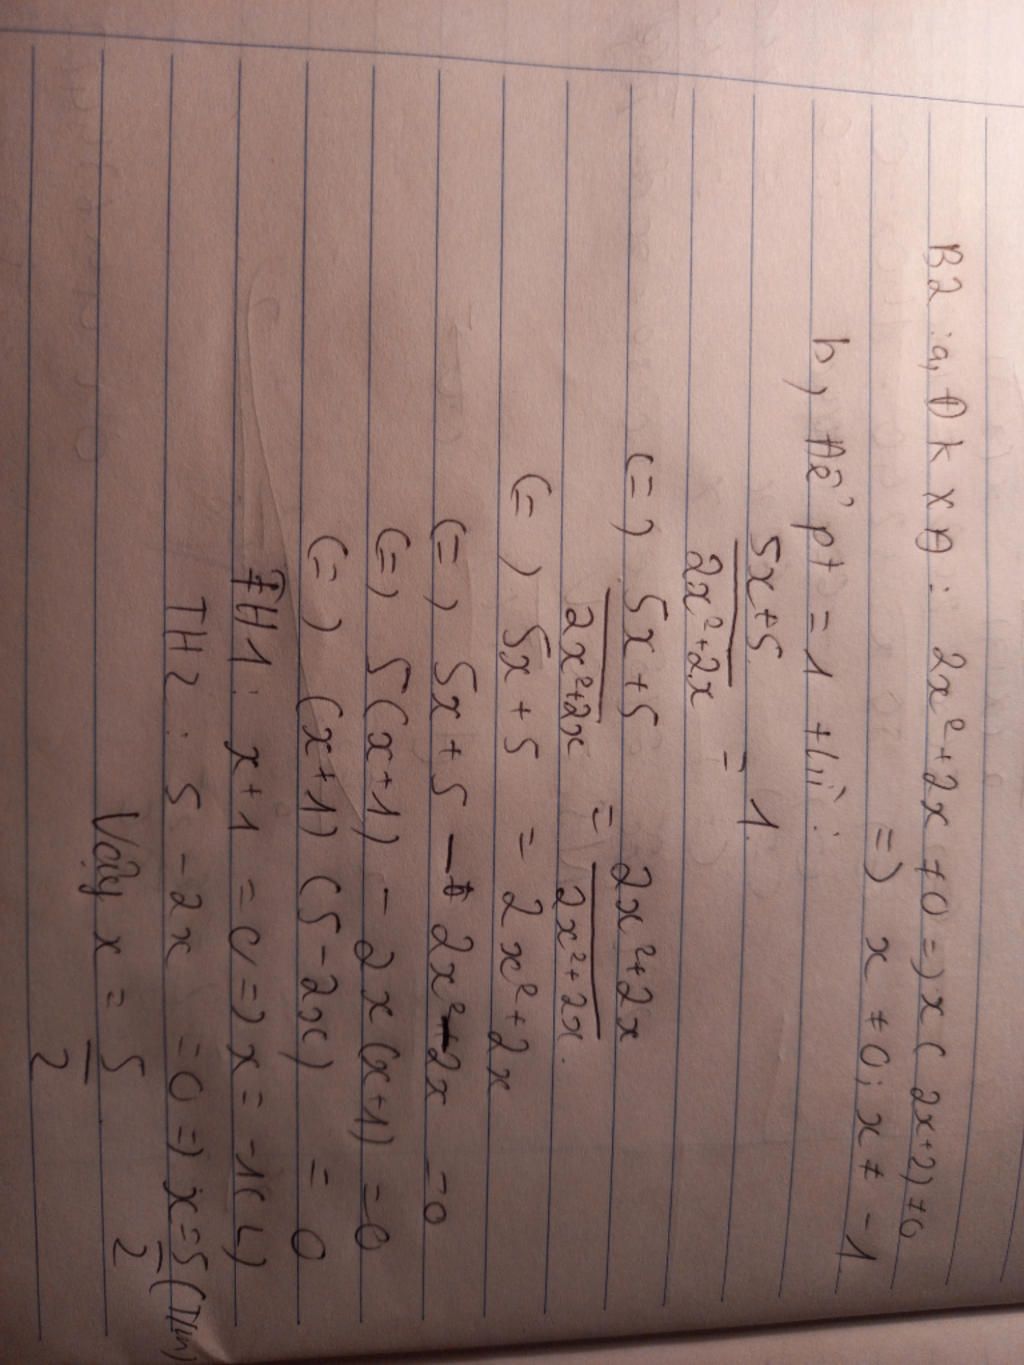 B2 : a, ĐKXĐ : 2x²+2x ≠0 =) x( 2x+2) ≠0
=) x ≠0; x ≠ -1
b, Để pt = 1 thì :
5x+5 / 2x²+2x = 1.
(=) 5x+5 / 2x²+2x = 2x²+2x / 2x²+2x.
(=) 5x+5 = 2x²+2x
(=) 5x+5 - 2x²-2x =0
(=) 5(x+1) - 2x(x+1) =0
(=) (x+1) (5-2x) = 0
TH1: x+1 =0 =) x= -1(L)
TH2 : 5 -2x =0 =) x= 5/2 (T/m)
Vậy x = 5/2